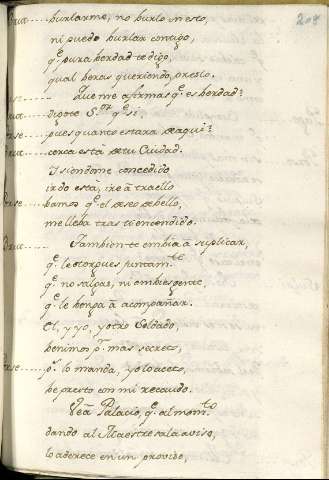 204
Brut.... burlarme, no burlo en esto,
ni puedo burlar contigo,
q.e pura berdad te digo,
qual beras queriendo, presto.
.... Que me afirmas q.e es berdad?
Brut.... Digote S.or q.e si.
Perse.... pues quanto estara de aqui?
Brut.... cerca està de tu Ciudad.
Y siendome concedido
irdo està, ire à traello
Perse... bamos q.e el deseo de bello,
me lleba tras ti encendido.
Brut..... Tambien te embia à suplicar,
q.e le otorgues juntam.te
q.e no salgas, ni embies gente,
q.e le benga à acompañar.
El, y yo, y otro Soldado,
benimos p.r mas secreto,
Perse.... p.s lo manda, yo lo aceto,
be presto con mi recaudo.
Ve à Palacio, q.e al mom.to
dando al Maestresala aviso,
lo aderece en un proviso,